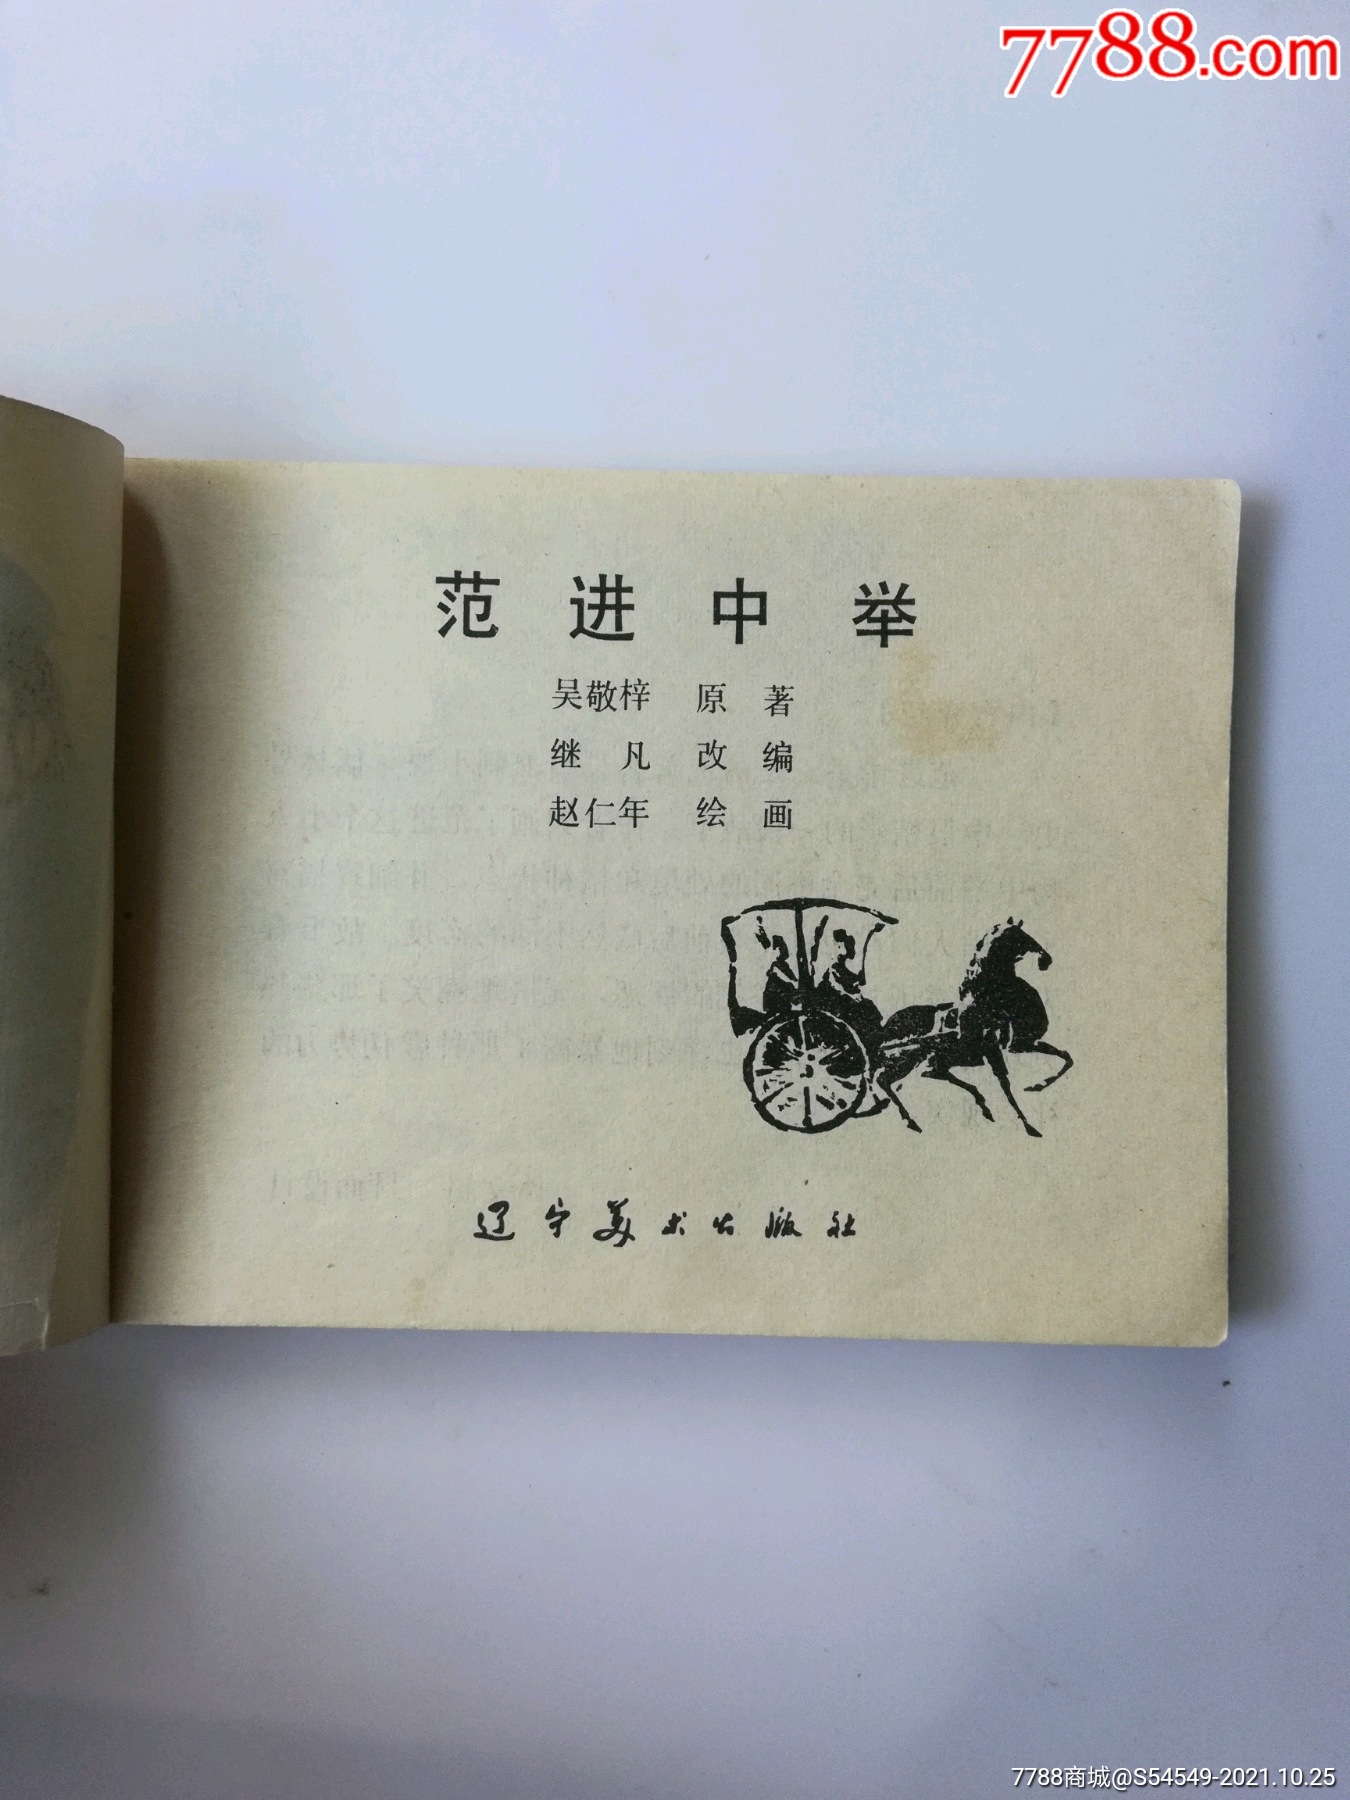 7788.com
范进中举
吴敬梓 原 著
继 凡 改 编
赵仁年 绘 画
辽宁美术出版社
7788商城@S54549-2021.10.25